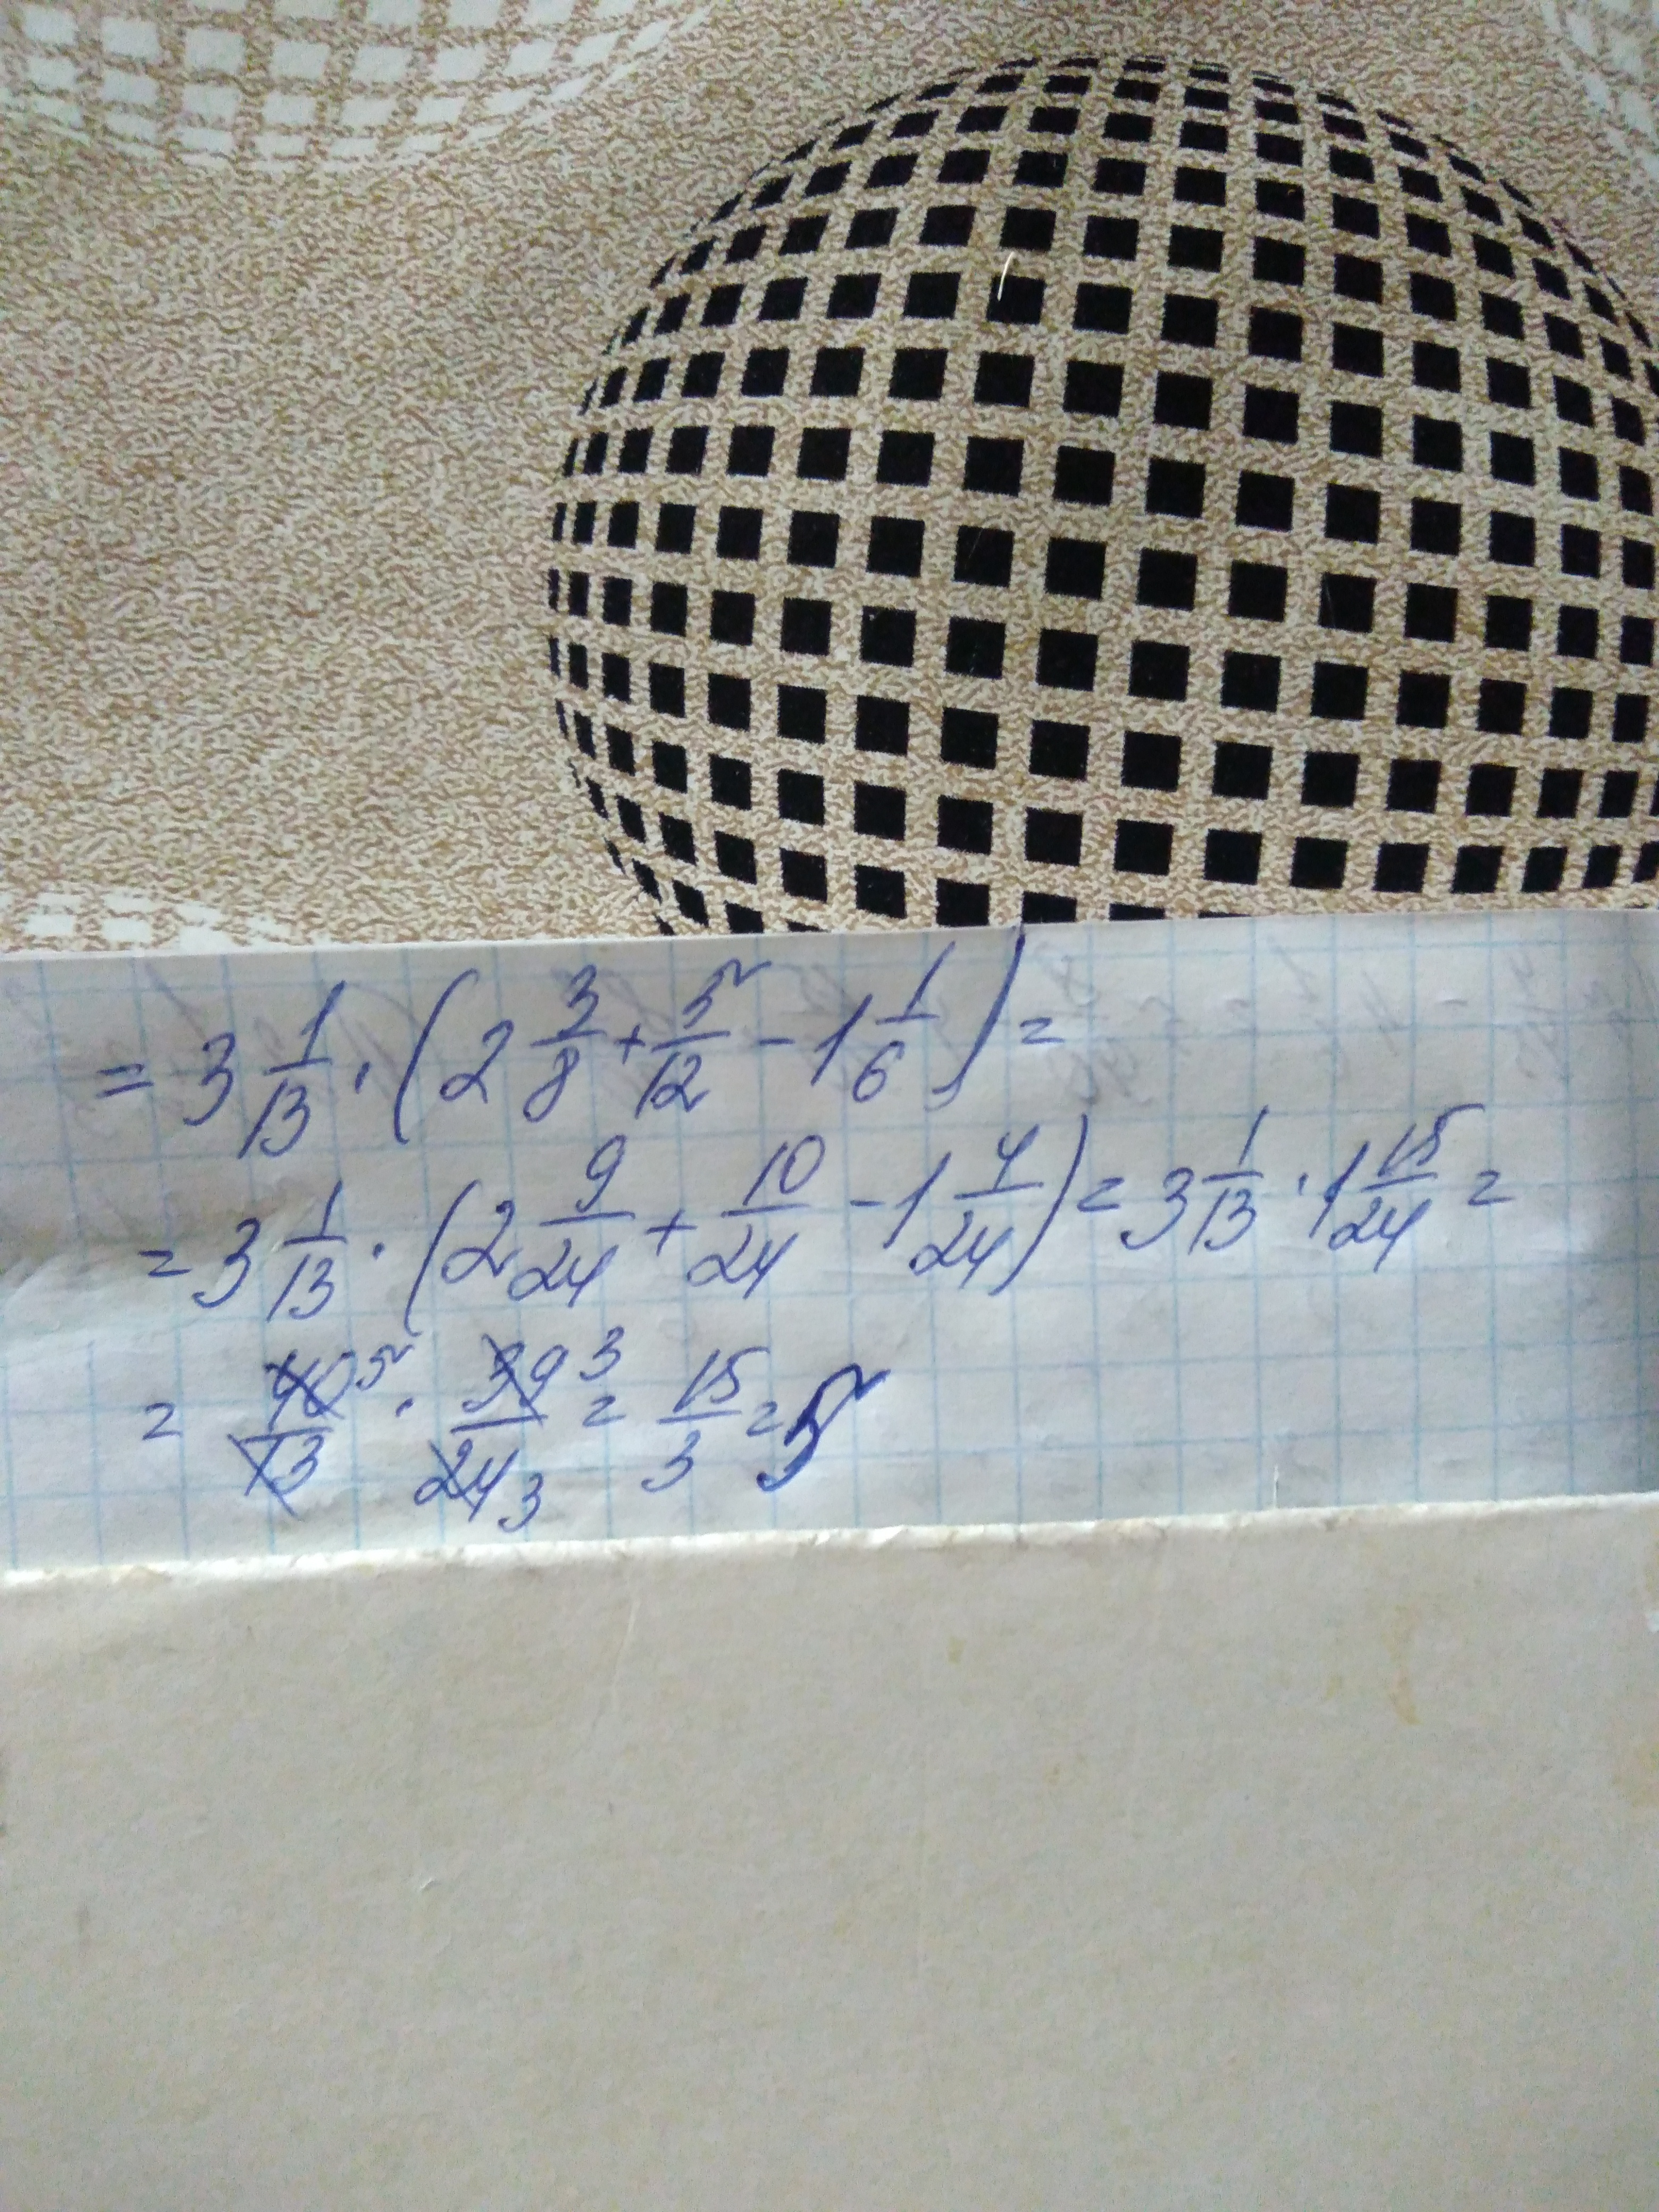 = 3 1/13 · (2 3/8 + 5/12 - 1 1/6) =
= 3 1/13 · (2 9/24 + 10/24 - 1 4/24) = 3 1/13 · 1 15/24 =
= 40 5/13 · 39 3/24 3 = 15/3 = 5